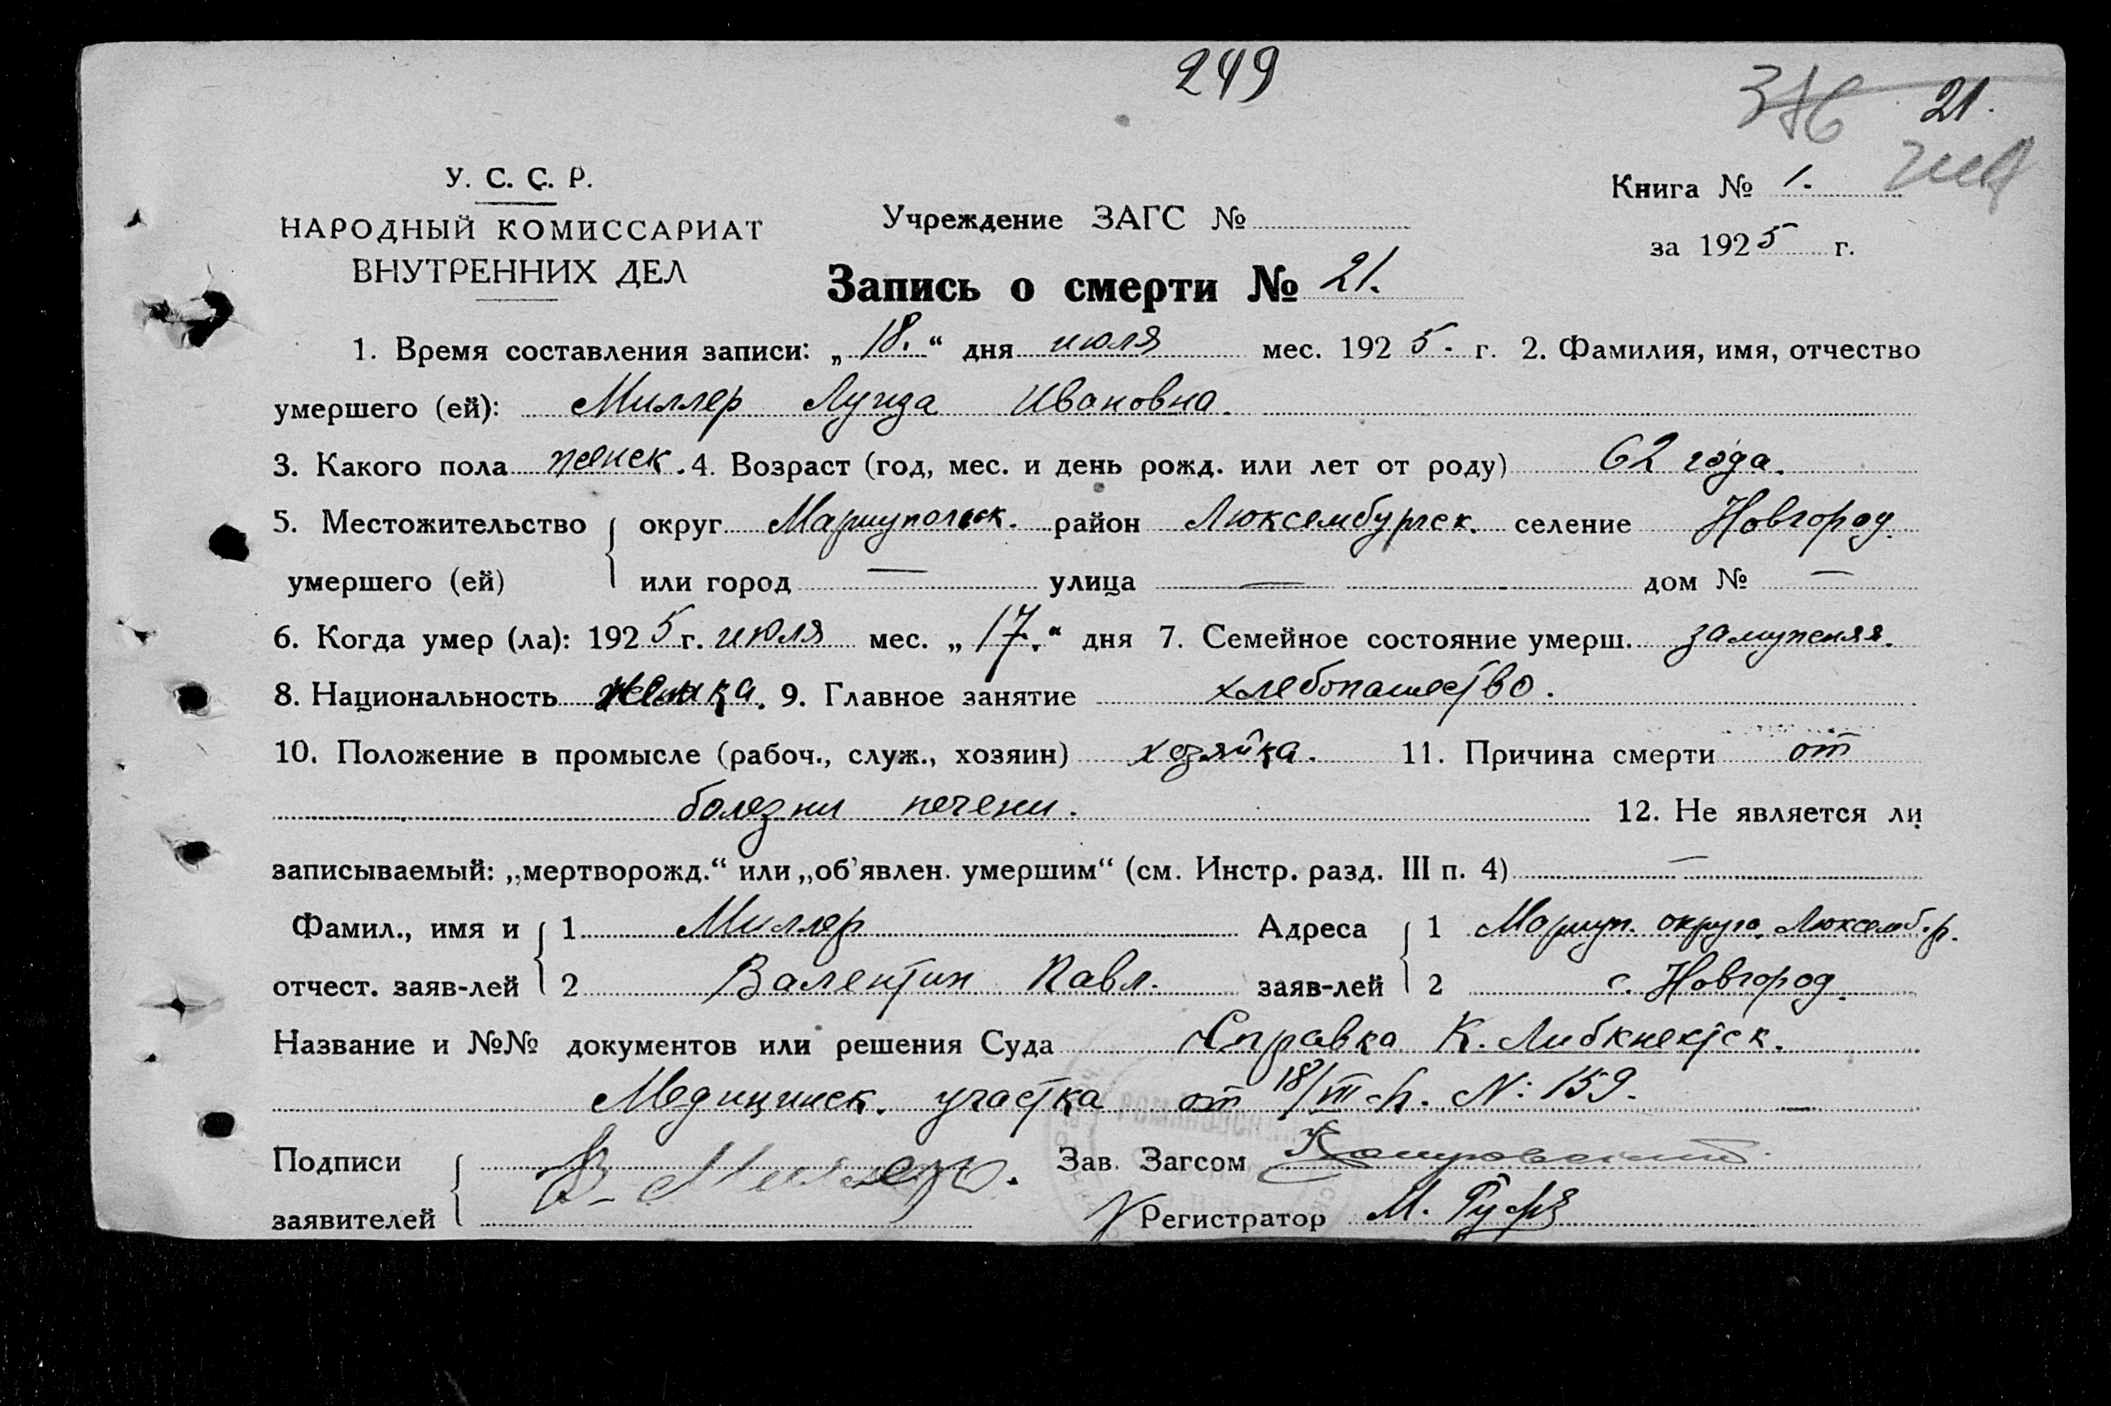 249
21.
У. С. С. Р.
НАРОДНЫЙ КОМИССАРИАТ
ВНУТРЕННИХ ДЕЛ
Учреждение ЗАГС №
Книга № 1.
за 1925 г.
Запись о смерти № 21.
1. Время составления записи: „18.“ дня июля мес. 1925. г. 2. Фамилия, имя, отчество
умершего (ей): Миллер Луиза Ивановна.
3. Какого пола женск. 4. Возраст (год, мес. и день рожд. или лет от роду) 62 года.
5. Местожительство округ Мариупольск. район Люксембургск. селение Новгород.
умершего (ей) или город — улица — дом № —
6. Когда умер (ла): 1925 г. июля мес. „17.“ дня 7. Семейное состояние умерш. замужняя.
8. Национальность немка. 9. Главное занятие хлебопашество.
10. Положение в промысле (рабоч., служ., хозяин) хозяйка. 11. Причина смерти от
болезни печени. 12. Не является ли
записываемый: „мертворожд.“ или „об'явлен. умершим“ (см. Инстр. разд. III п. 4) —
Фамил., имя и 1 Миллер Адреса 1 Мариуп. округа, Люксемб. р.
отчест. заяв-лей 2 Валентин Павл. заяв-лей 2 с. Новгород.
Название и №№ документов или решения Суда Справка К. Либкнехтск.
Медицинск. участка от 18/VII с/г. №: 159.
Подписи В. Миллер. Зав. Загсом
заявителей Регистратор М.